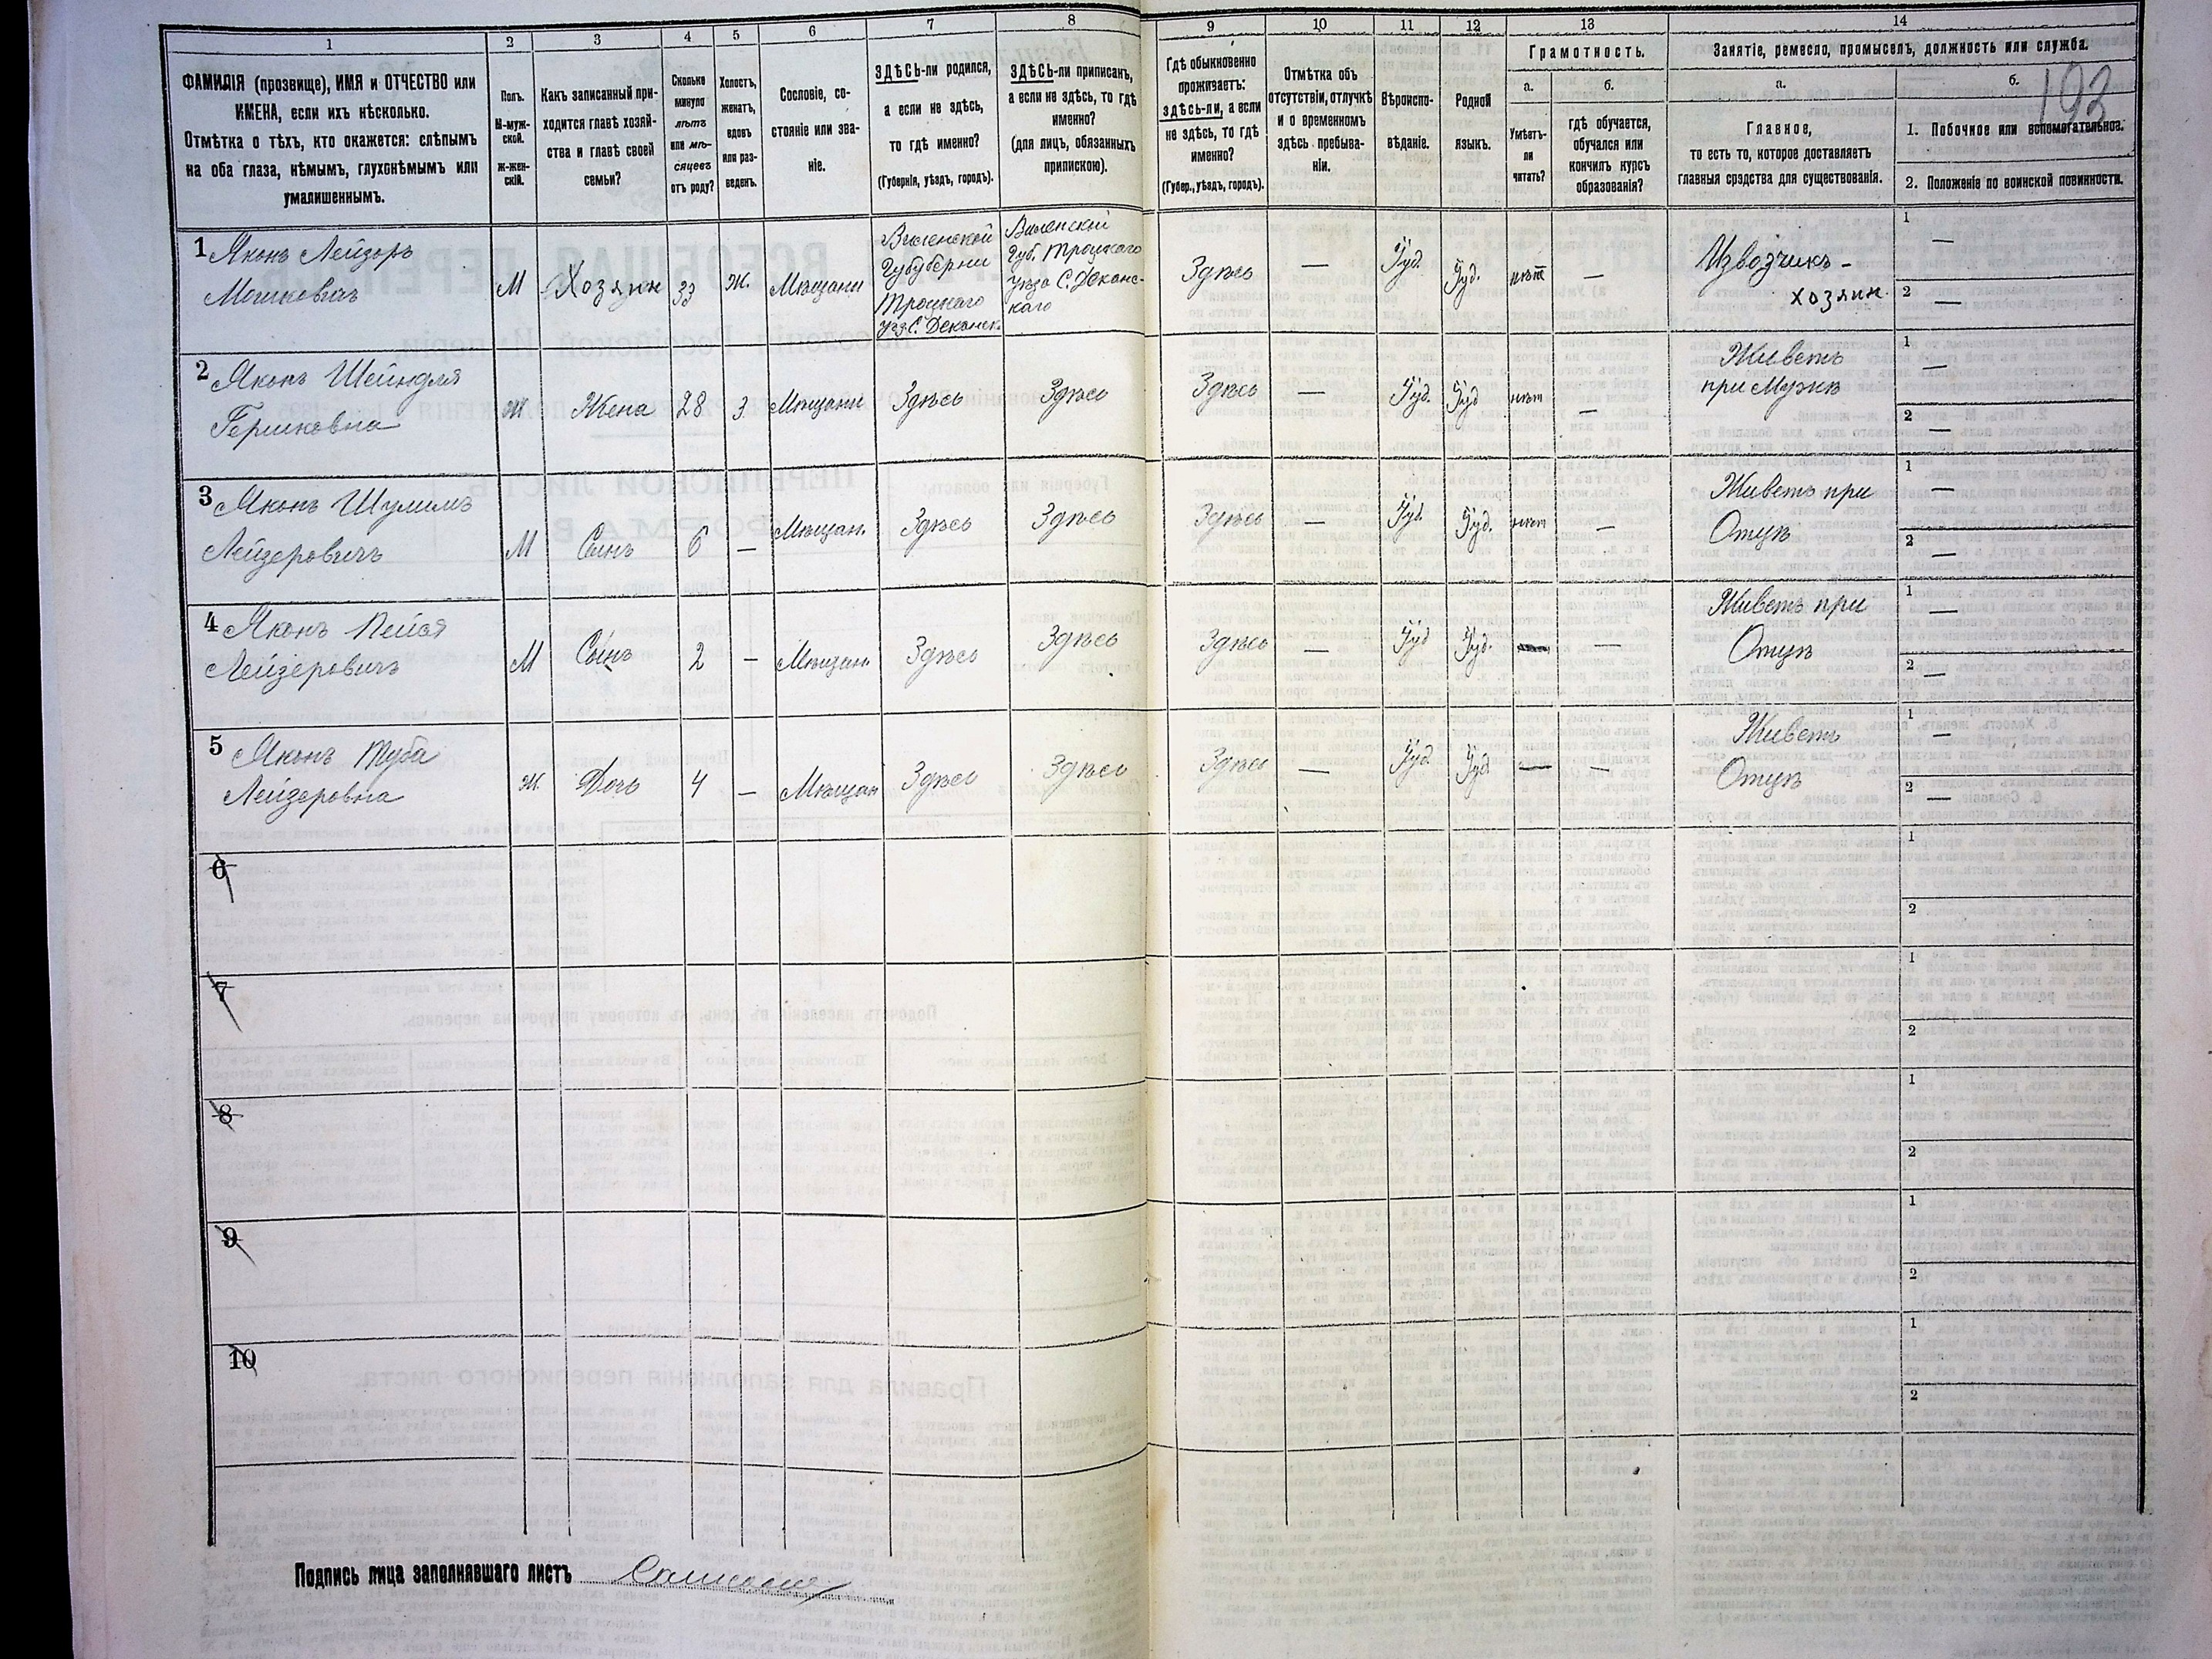 1 2 3 4 5 6 7 8 9 10 11 12 13 14
ФАМИЛІЯ (прозвище), ИМЯ и ОТЧЕСТВО или
ИМЕНА, если ихъ нѣсколько.
Отмѣтка о тѣхъ, кто окажется: слѣпымъ
на оба глаза, нѣмымъ, глухонѣмымъ или
умалишеннымъ.
Полъ.
М-муж-
ской.
ж-жен-
скій.
Какъ записанный при-
ходится главѣ хозяй-
ства и главѣ своей
семьи?
Сколько
минуло
лѣтъ
или мѣ-
сяцевъ
отъ роду?
Холостъ,
женатъ,
вдовъ
или раз-
веденъ.
Сословіе, со-
стояніе или зва-
ніе.
ЗДѢСЬ-ли родился,
а если не здѣсь,
то гдѣ именно?
(Губернія, уѣздъ, городъ).
ЗДѢСЬ-ли приписанъ,
а если не здѣсь, то гдѣ
именно?
(для лицъ, обязанныхъ
припискою).
Гдѣ обыкновенно
проживаетъ:
здѣсь-ли, а если
не здѣсь, то гдѣ
именно?
(Губер., уѣздъ, городъ).
Отмѣтка объ
отсутствіи, отлучкѣ
и о временномъ
здѣсь пребыва-
ніи.
Вѣроиспо-
вѣданіе.
Родной
языкъ.
Грамотность.
а.
Умѣетъ-
ли
читать?
б.
гдѣ обучается,
обучался или
кончилъ курсъ
образованія?
Занятіе, ремесло, промыселъ, должность или служба.
а.
Главное,
то есть то, которое доставляетъ
главныя средства для существованія.
б.
193
1. Побочное или вспомогательное.
2. Положеніе по воинской повинности.
1 Яконъ Лейзоръ
Мошковичъ
М
Хозяин
33
Ж.
Мѣщани
Виленской
Губуберни
Троцкаго
Виленской
Губ. Троцкаго
Здѣсь
—
Іуд.
Іуд.
нѣт
—
Извозчикъ -
хозяин
1 —
2 —
2 Яконъ Шейндля
Гершковна
Ж
Жена
28
З
Мѣщани
Здѣсь
Здѣсь
Здѣсь
—
Іуд.
Іуд
нѣт
—
Живетъ
при Мужѣ
1 —
2 —
3 Яконъ Шулимъ
Лейзеровичъ
М
Сынъ
6
—
Мѣщан.
Здѣсь
Здѣсь
Здѣсь
—
Іуд.
Іуд.
нѣт
—
Живетъ при
Отцѣ
1 —
2 —
4 Яконъ Пейся
Лейзеровичъ
М
Сынъ
2
—
Мѣщан
Здѣсь
Здѣсь
Здѣсь
—
Іуд
Іуд.
—
—
Живетъ при
Отцѣ
1 —
2 —
5 Яконъ Туба
Лейзеровна
Ж.
Дочь
4
—
Мѣщан
Здѣсь
Здѣсь
Здѣсь
—
Іуд.
Іуд.
—
—
Живетъ
Отцѣ
1 —
2 —
6
1
2
7
1
2
8
1
2
9
1
2
10
1
2
Подпись лица заполнявшаго листъ